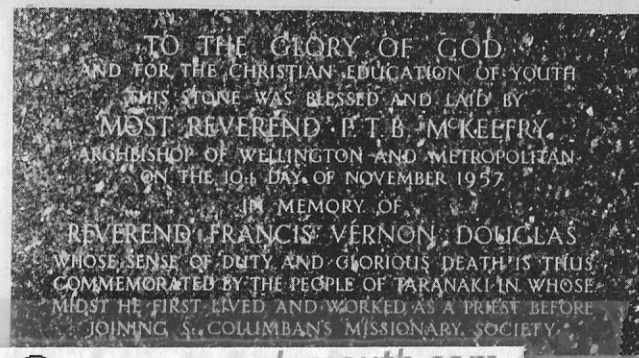 TO THE GLORY OF GOD
AND FOR THE CHRISTIAN EDUCATION OF YOUTH
THIS STONE WAS BLESSED AND LAID BY
MOST REVEREND P.T.B. McKEEFRY
ARCHBISHOP OF WELLINGTON AND METROPOLITAN
ON THE 10th DAY OF NOVEMBER 1957
IN MEMORY OF
REVEREND FRANCIS VERNON DOUGLAS
WHOSE SENSE OF DUTY AND GLORIOUS DEATH IS THUS
COMMEMORATED BY THE PEOPLE OF TARANAKI IN WHOSE
MIDST HE FIRST LIVED AND WORKED AS A PRIEST BEFORE
JOINING St COLUMBAN'S MISSIONARY SOCIETY